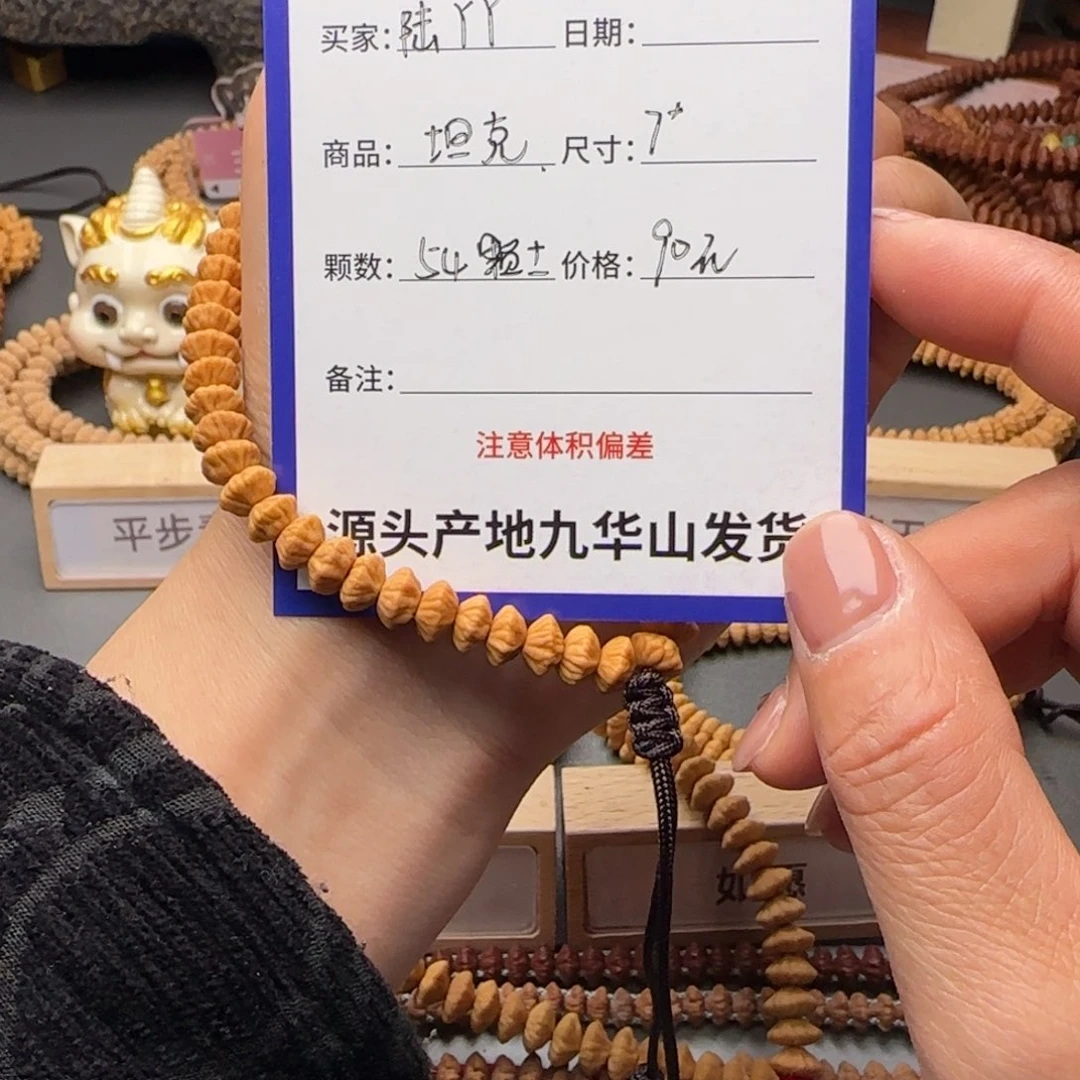 买家：陆丫丫 日期：
商品：坦克 尺寸：7+
颗数：54颗± 价格：90元
备注：
注意体积偏差
源头产地九华山发货
平步
如愿